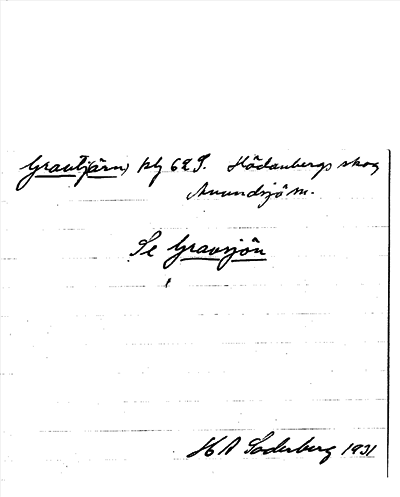 Gravtjärn, blg 6 E S. Hädanbergs skog
Anundsjö sn.
Se Gravsjön
H A Söderberg 1931